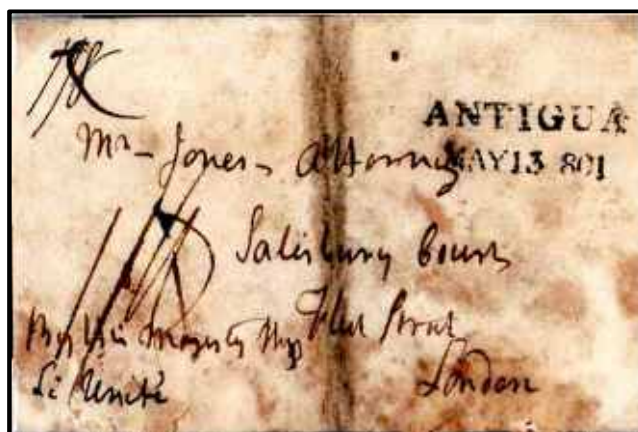 ANTIGUA
MAY 13 801
Mr Jones Attorney
Salisbury Court
Fleet Street
London
By His Majestys Ship
Le Unité